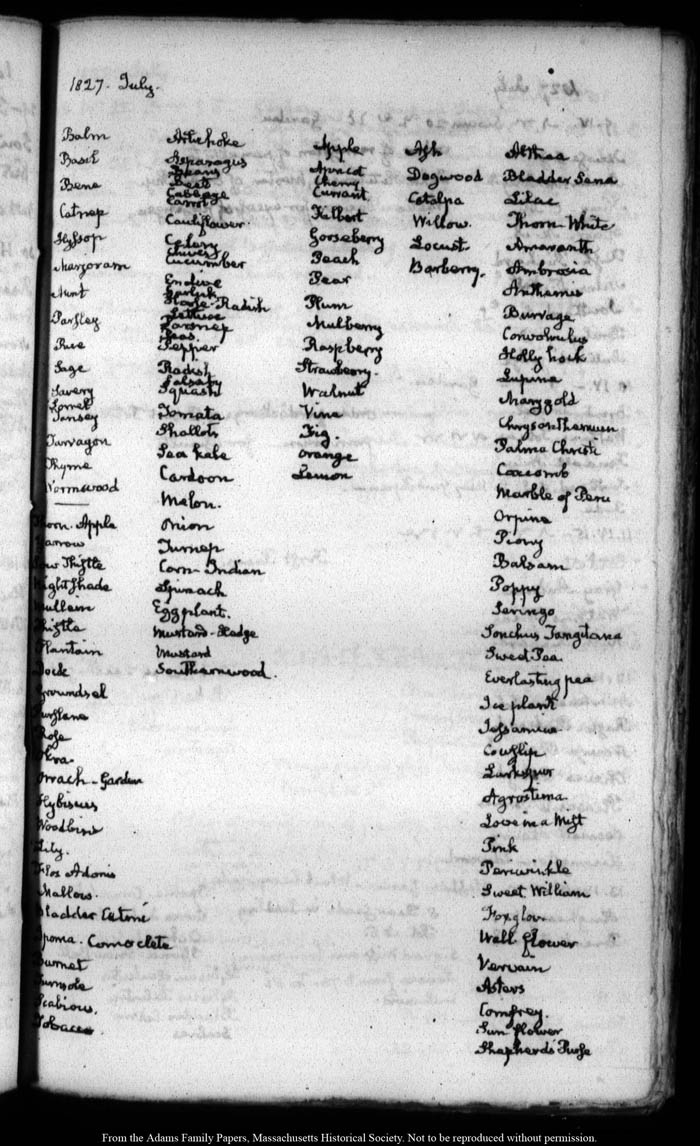 1827. July.
Balm
Basil
Bene
Catnep
Hyssop
Marjoram
Mint
Parsley
Rue
Sage
Savory
Sorrel
Tansey
Tarragon
Thyme
Wormwood
Thorn. Apple
Yarrow
Sow Thistle
Night Shade
Mullein
Thistle
Plantain
Dock
Groundsel
Purslane
Rose
Okra
Orrach - Garden
Hybiscus
Woodbine
Lily.
Flos Adonis
Mallows.
Bladder Ketmi
Ipoma. Comoclete
Burnet
Turnsole
Scabious.
Tobacco.
Artichoke
Asparagus
Beans
Beet
Cabbage
Carrot
Cauliflower.
Celery
Chives
Cucumber
Endive
Garlick
Horse-Radish
Lettuce
Parsnep
Peas
Pepper
Radish
Salsafy
Squash
Tomata
Shallots
Sea kale
Cardoon
Melon.
Onion
Turnep
Corn-Indian
Spinach
Eggplant.
Mustard-Hedge
Mustard
Southernwood.
Apple
Apricot
Cherry
Currant
Filbert
Gorseberry
Peach
Pear
Plum
Mulberry
Raspberry
Strawberry.
Walnut
Vine
Fig.
Orange
Lemon
Ash
Dogwood
Catalpa
Willow.
Locust.
Barberry.
Althaea
Bladder Sena
Lilac
Thorn-White
Amaranth
Ambrosia
Anthemis
Burrage
Convolvulus
Holly hock
Lupine
Marygold
Chrysanthemum
Palma Christi
Coxcomb
Marble of Peru
Orpine
Piony
Balsam
Poppy
Seringo
Sonchus Tangitana
Sweet Pea
Everlasting pea
Ice plant
Jessamine.
Cowslip
Larkspur
Agrostima
Love in a Mist
Pink
Periwinkle
Sweet William
Foxglove
Wall flower
Vervain
Asters
Comfrey.
Sun flower
Shepherds Purse
From the Adams Family Papers, Massachusetts Historical Society. Not to be reproduced without permission.